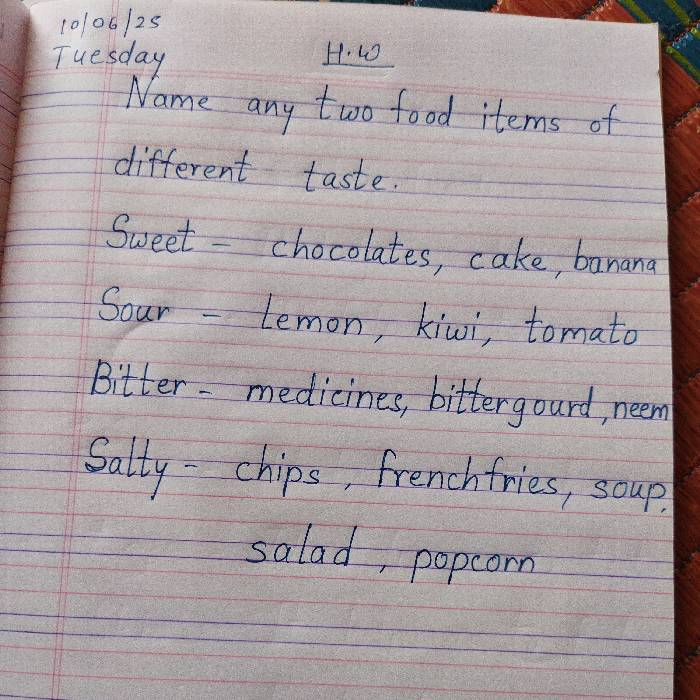 10/06/25
Tuesday
H.W
Name any two food items of
different taste.
Sweet - chocolates, cake, banana
Sour - Lemon, kiwi, tomato
Bitter - medicines, bittergourd, neem
Salty - chips, frenchfries, soup,
salad, popcorn